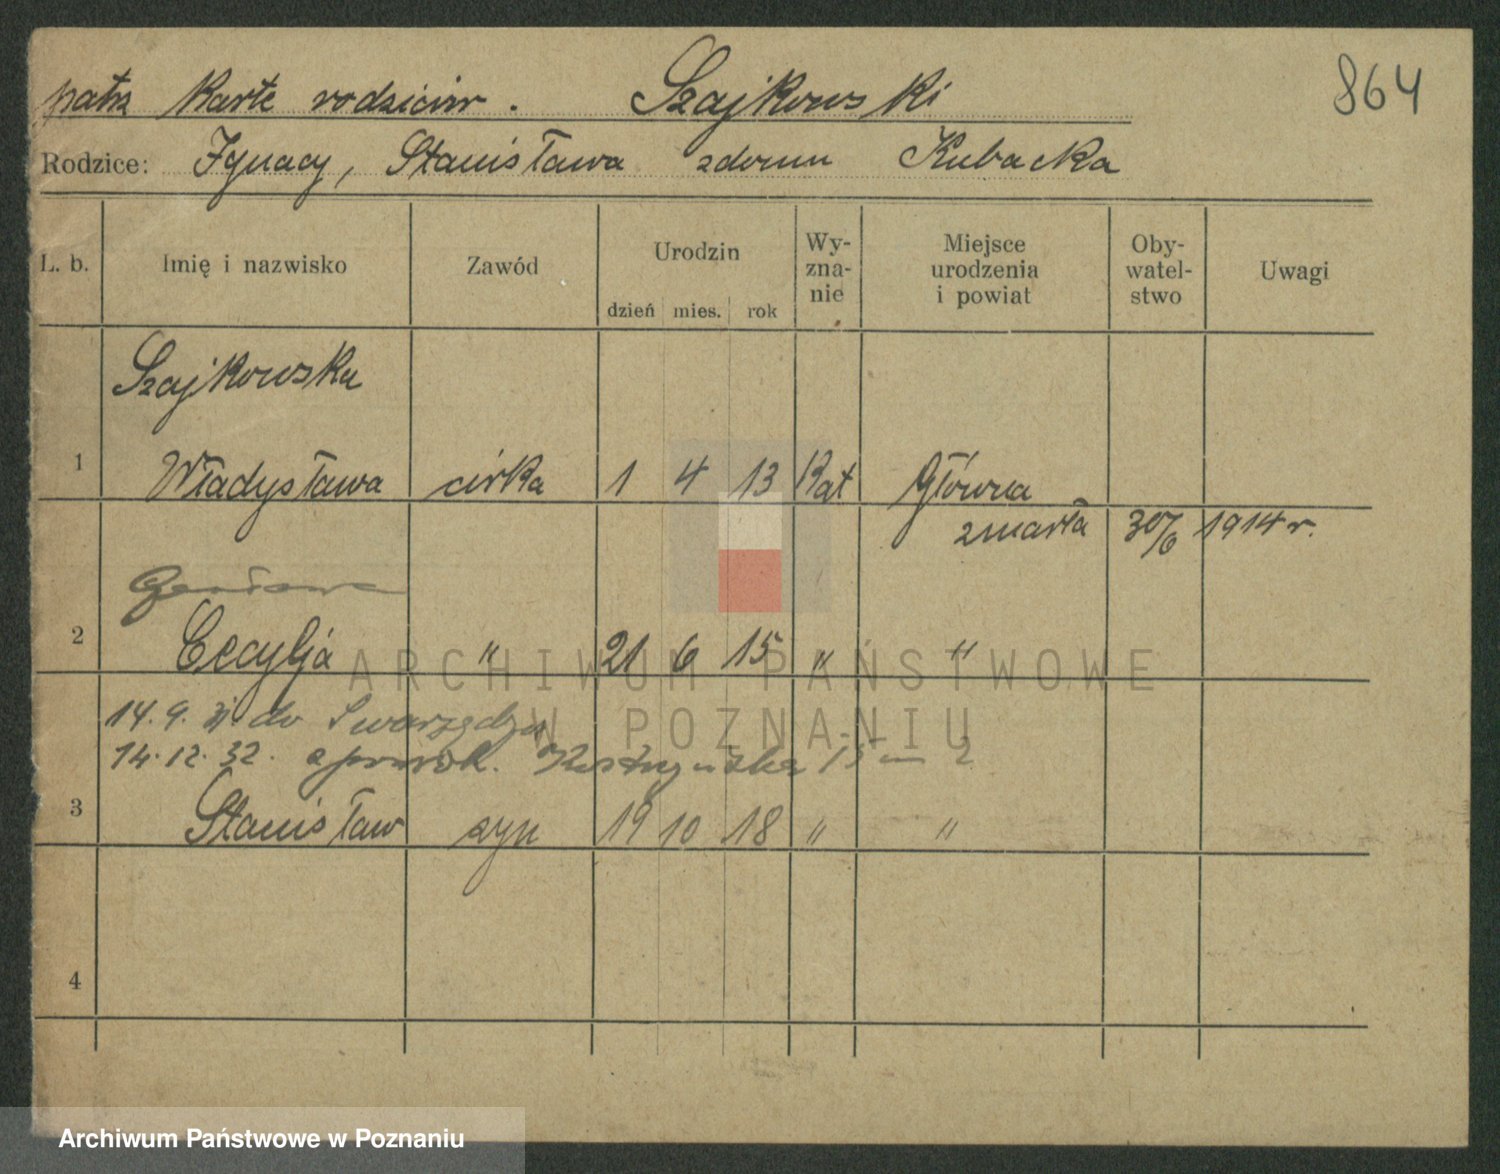 864
patrz Kartę rodziców. Szajkowski
Rodzice: Ignacy, Stanisława zdomu Kubacka
L. b. Imię i nazwisko Zawód Urodzin dzień mies. rok Wy-zna-nie Miejsce urodzenia i powiat Oby-watel-stwo Uwagi
Szajkowska
1 Władysława córka 1 4 13 Kat Główna
zmarła 30/6 1914 r.
2 Cecylja " 21 6 15 " "
14.9. do Swarzędza
14.12.32. z powrot.
3 Stanisław syn 19 10 18 " "
4
ARCHIWUM PAŃSTWOWE
W POZNANIU
Archiwum Państwowe w Poznaniu